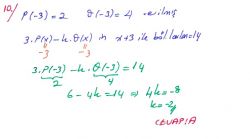 10/ P(-3)=2 Q(-3)=4 verilmiş
3.P(x)-k.Q(x) in x+3 ile böl. kalan=14
-3 -3
3.P(-3)-k.Q(-3)=14
2 4
6-4k=14 ⇒ 4k=-8
k=-2
CEVAP:A